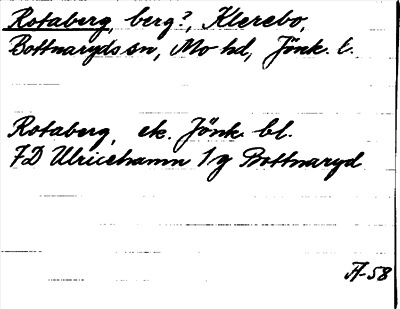 Rotaberg, berg?, Klerebo,
Bottnaryds sn, Mo hd, Jönk. l.
Rotaberg, ek. Jönk. bl.
7D Ulricehamn 1 g Bottnaryd
A-58